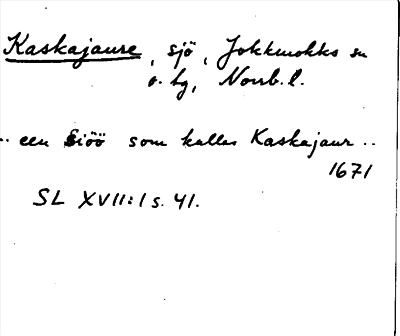 Kaskajaure, sjö, Jokkmokks sn
o. hg, Norrb. l.
.. een Siöö som kallas Kaskajaur ..
1671
SL XVII:1 s. 41.